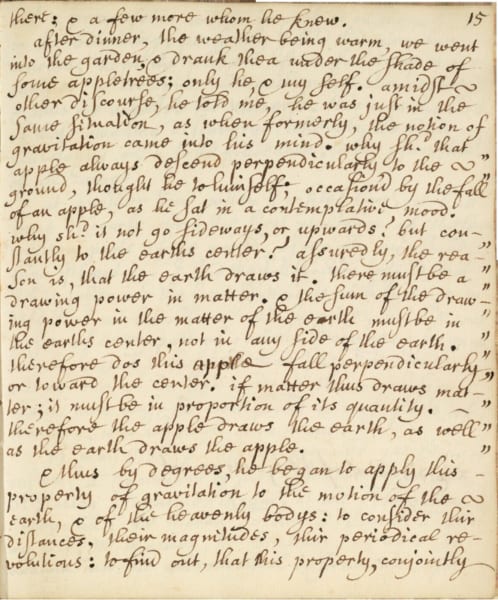 there: & a few more whom he knew. 15
after dinner, the weather being warm, we went
into the garden, & drank thea under the shade of
some appletrees; only he, & my self. amidst
other discourse, he told me, he was just in the
same situation, as when formerly, the notion of
gravitation came into his mind. why sh.d that
apple always descend perpendicularly to the "
ground, thought he to himself; occasion'd by the fall "
of an apple, as he sat in a contemplative mood. "
why sh.d it not go sideways, or upwards? but con- "
stantly to the earths center? assuredly, the rea- "
son is, that the earth draws it. there must be a "
drawing power in matter. & the sum of the draw- "
ing power in the matter of the earth must be in "
the earths center, not in any side of the earth. "
therefore dos this apple fall perpendicularly "
or toward the center. if matter thus draws mat- "
ter; it must be in proportion of its quantity. "
therefore the apple draws the earth, as well "
as the earth draws the apple. "
& thus by degrees, he began to apply this
property of gravitation to the motion of the
earth, & of the heavenly bodys: to consider thir
distances, their magnitudes, thir periodical re-
volutions: to find out, that this property, conjointly